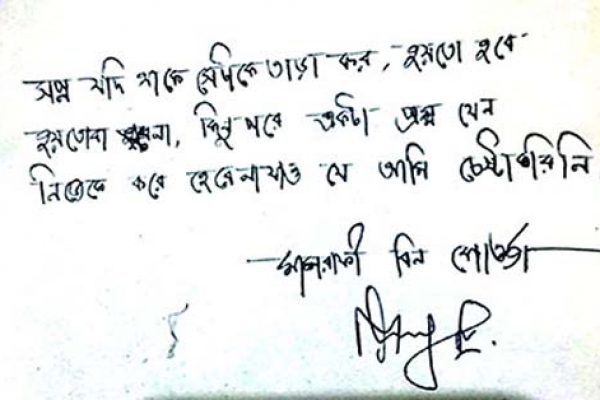 স্বপ্ন যদি থাকে সেটাকে তাড়া কর, হয়তো হবে
হয়তোবা হবেনা, কিন্তু পরে একটা প্রশ্ন যেন
নিজেকে করে হেরেনাযাও যে আমি চেষ্টাকরিনি
মাশরাফী বিন মোর্ত্তজা